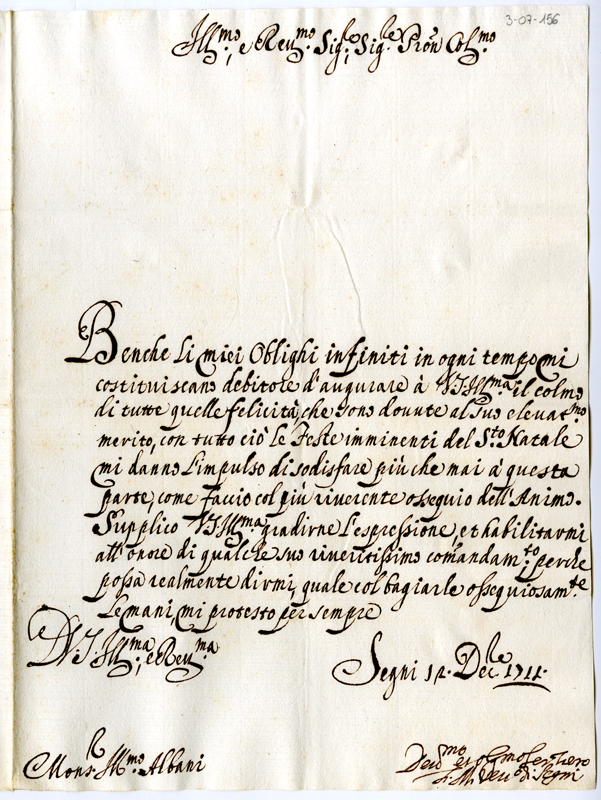 3-07-156
Ill.mo e Reu.mo Sig.re Sig.re Pron Col.mo
Benche li miei Oblighi infiniti in ogni tempo mi
costituiscano debitore d'augurare à V.S. Ill.ma il colmo
di tutte quelle felicità, che sono douute al suo eleuat.mo
merito, con tutto ciò le Feste imminenti del S.to Natale
mi danno l'impulso di sodisfare più che mai à questa
parte, come faccio col più riuerente ossequio dell'Animo.
Supplico V.S. Ill.ma gradirne l'espressione, et habilitarmi
all'onore di qualche suo riueritissimo comandam.to perche
possa realmente dirmi, quale col bagiarle ossequiosam.te
le mani, mi protesto per sempre
D.V.S. Ill.ma, e Reu.ma
Segni 12. Dec.re 1711.
Mons.r Ill.mo Albani
Deu.mo et obl.mo Ser. uero
Veu.o di Segni